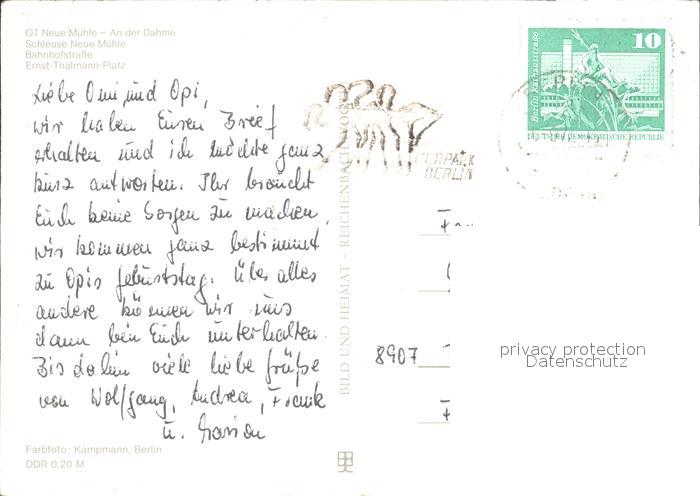 OT Neue Mühle – An der Dahme
Schleuse Neue Mühle
Bahnhofstraße
Ernst-Thälmann-Platz
Liebe Omi und Opi,
wir haben Euren Brief
erhalten und ich möchte ganz
kurz antworten. Ihr braucht
Euch keine Sorgen zu machen,
wir kommen ganz bestimmt
zu Opis Geburtstag. Über alles
andere können wir uns
dann bei Euch unterhalten.
Bis dahin viele liebe Grüße
von Wolfgang, Andrea, Frank
u. Marion
Farbfoto: Kampmann, Berlin
DDR 0,20 M
BILD UND HEIMAT · REICHENBACH
TIERPARK
BERLIN
Berlin · Rathausstraße
10
DEUTSCHE DEMOKRATISCHE REPUBLIK
8907
privacy protection
Datenschutz